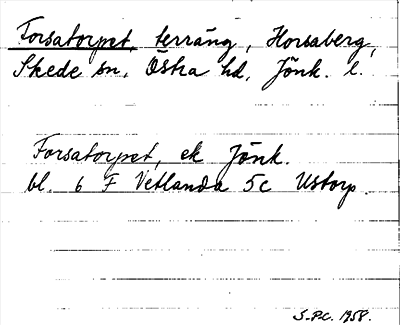 Forsatorpet, terräng, Horsaberg,
Skede sn, Östra hd, Jönk. l.
Forsatorpet, ek Jönk.
bl. 6 F Vetlanda 5c Ustorp.
S.P.C. 1958.